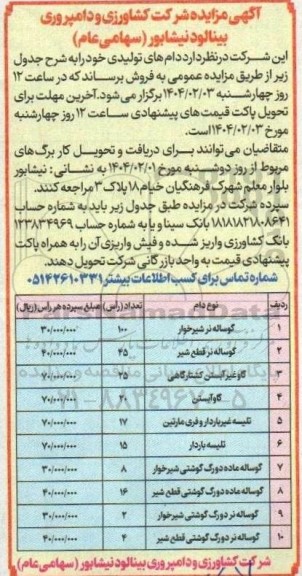 آگهی مزایده شرکت کشاورزی و دامپروری
بینالود نیشابور (سهامی عام)
این شرکت در نظر دارد دام های تولیدی خود را به شرح جدول
زیر از طریق مزایده عمومی به فروش برساند که در ساعت ۱۲
روز چهارشنبه ۱۴۰۴/۰۲/۰۳ برگزار می شود. آخرین مهلت برای
تحویل پاکت قیمت های پیشنهادی ساعت ۱۲ روز چهارشنبه
مورخ ۱۴۰۴/۰۲/۰۳ است.
متقاضیان می توانند برای دریافت و تحویل کار برگ های
مربوط از روز دوشنبه مورخ ۱۴۰۴/۰۲/۰۱ به نشانی: نیشابور
بلوار معلم شهرک فرهنگیان خیام ۱۸ پلاک ۳ مراجعه کنند.
سپرده شرکت در مزایده طبق جدول زیر باید به شماره حساب
۱۸۱۸۱۸۲۱۸۰۸۶۴۱ بانک سینا و یا به شماره حساب ۱۲۳۸۳۴۹۶۹
بانک کشاورزی واریز شده و فیش واریزی آن را به همراه پاکت
پیشنهادی قیمت به واحد بازرگانی شرکت تحویل دهند.
شماره تماس برای کسب اطلاعات بیشتر ۰۵۱۴۲۶۱۰۳۳۱
ردیف نوع دام تعداد (رأس) مبلغ سپرده هر راس (ریال)
۱ گوساله نر شیرخوار ۱۰۰ ۳۰/۰۰۰/۰۰۰
۲ گوساله نر قطع شیر ۴۵ ۴۰/۰۰۰/۰۰۰
۳ گاو غیر آبستن کشتارگاهی ۲۵ ۷۰/۰۰۰/۰۰۰
۴ گاو آبستن ۲۰ ۷۰/۰۰۰/۰۰۰
۵ تلیسه غیرباردار و فری مارتین ۱۷ ۷۰/۰۰۰/۰۰۰
۶ تلیسه باردار ۱۵ ۷۰/۰۰۰/۰۰۰
۷ گوساله ماده دورگ گوشتی شیرخوار ۸ ۳۰/۰۰۰/۰۰۰
۸ گوساله ماده دورگ گوشتی قطع شیر ۱۶ ۴۰/۰۰۰/۰۰۰
۹ گوساله نر دورگ گوشتی شیرخوار ۲ ۳۰/۰۰۰/۰۰۰
۱۰ گوساله نر دورگ گوشتی قطع شیر ۴ ۴۰/۰۰۰/۰۰۰
شرکت کشاورزی و دامپروری بینالود نیشابور (سهامی عام)